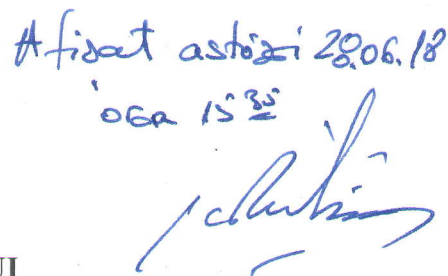 Afisat astăzi 28.06.18
ora 15 35
UI